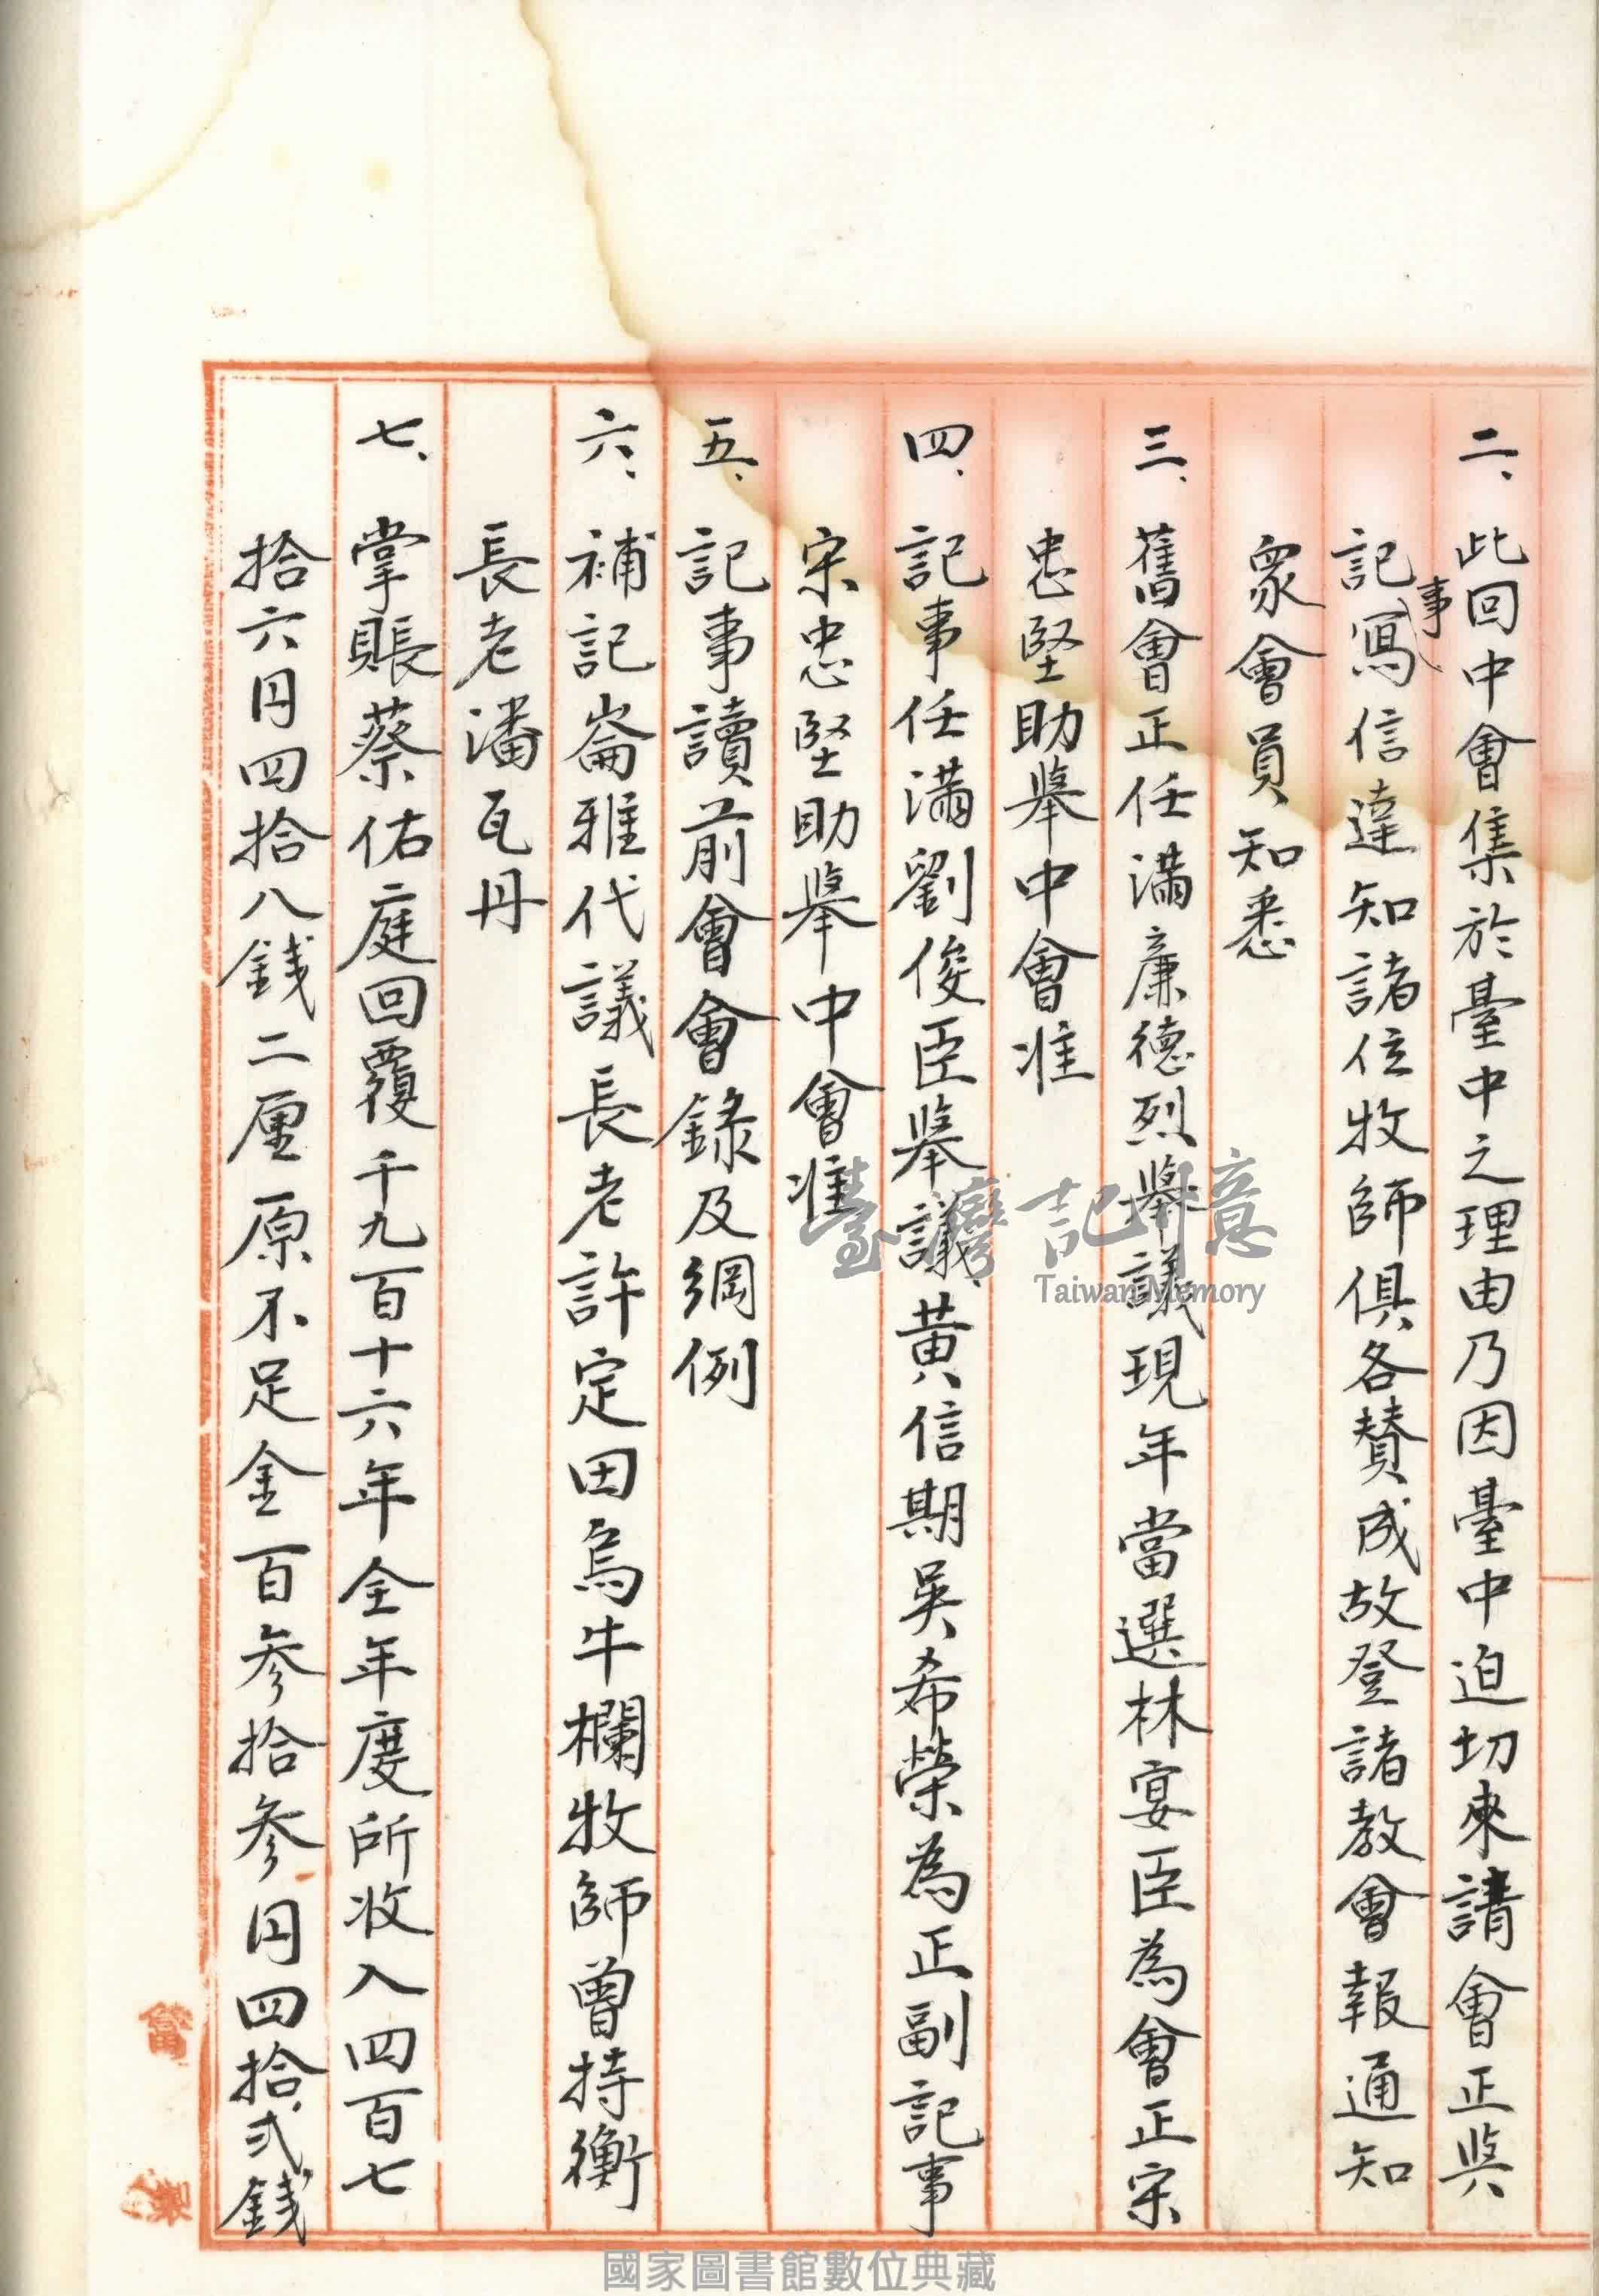 二、此回中會集於臺中之理由乃因臺中迫切來請會正與
記事寫信達知諸位牧師俱各贊成故登諸教會報通知
眾會員知悉
三、舊會正任滿廉德烈舉議現年當選林宴臣為會正宋
忠堅助舉中會准
四、記事任滿劉俊臣舉議、黃信期吳希榮為正副記事
宋忠堅助舉中會准
五、記事讀前會會錄及綱例
六、補記崙雅代議長老許定因烏牛欄牧師曾持衡
長老潘瓦丹
七、掌賬蔡佑庭回覆千九百十六年全年度所收入四百七
拾六円四拾八錢二厘原不足金百參拾參円四拾弍錢
臺灣記憶
Taiwan Memory
國家圖書館數位典藏